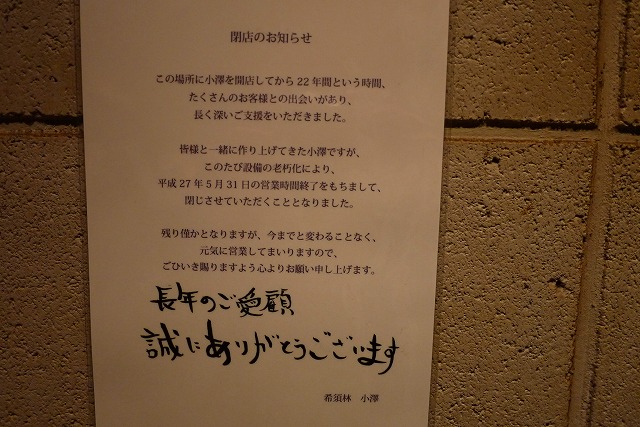 閉店のお知らせ
この場所に小澤を開店してから22年間という時間、
たくさんのお客様との出会いがあり、
長く深いご支援をいただきました。
皆様と一緒に作り上げてきた小澤ですが、
このたび設備の老朽化により、
平成27年5月31日の営業時間終了をもちまして、
閉じさせていただくこととなりました。
残り僅かとなりますが、今までと変わることなく、
元気に営業してまいりますので、
ごひいき賜りますよう心よりお願い申し上げます。
長年のご愛顧
誠にありがとうございます
希須林　小澤